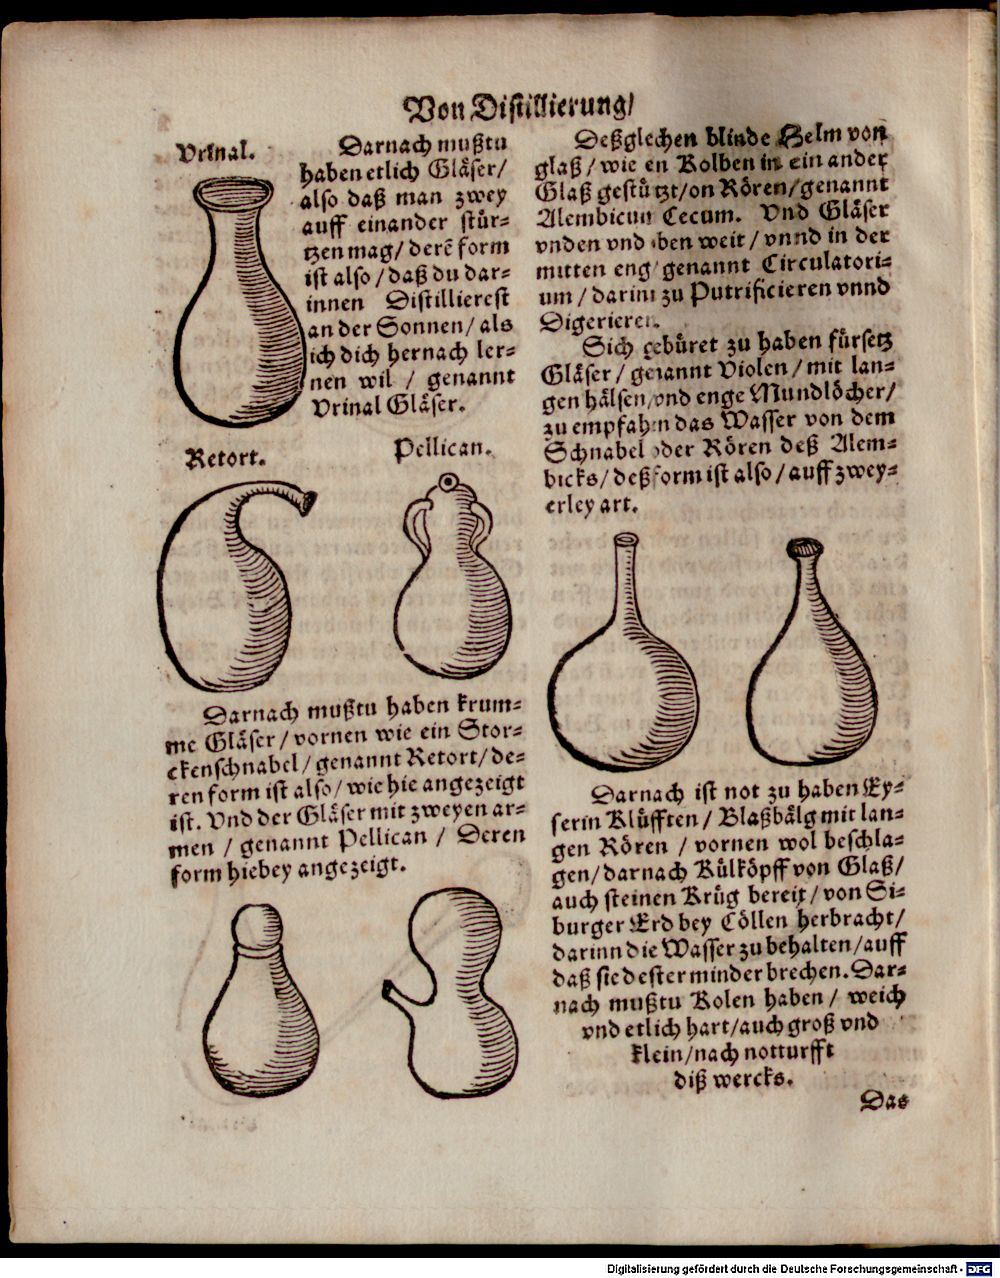 Von Distillierung/
Vrinal.
Darnach mußtu
haben etlich Gläser/
also daß man zwey
auff einander stür-
tzen mag/ derē form
ist also / daß du dar-
innen Distillierest
an der Sonnen/ als
ich dich hernach ler-
nen wil / genannt
Vrinal Gläser.
Retort.
Pellican.
Darnach mußtu haben krum-
me Gläser / vornen wie ein Stor-
ckenschnabel / genannt Retort / de-
ren form ist also / wie hie angezeigt
ist. Vnd der Gläser mit zweyen ar-
men / genannt Pellican / Deren
form hiebey angezeigt.
Deßglechen blinde Helm von
glaß / wie en Kolben in ein ander
Glaß gestützt/on Rören/genannt
Alembicum Cecum. Vnd Gläser
vnden vnd oben weit / vnnd in der
mitten eng genannt Circulatori-
um / darinn zu Putrificieren vnnd
Digerieren.
Sich gebüret zu haben fürsetz
Gläser / genannt Violen / mit lan-
gen hälsen/vnd enge Mundlöcher/
zu empfahen das Wasser von dem
Schnabel oder Rören deß Alem-
bicks/ deß form ist also / auff zwey-
erley art.
Darnach ist not zu haben Ey-
serin Klüfften / Blaßbälg mit lan-
gen Rören / vornen wol beschla-
gen/ darnach Külköpff von Glaß/
auch steinen Krüg bereit / von Si-
burger Erd bey Cöllen herbracht/
darinn die Wasser zu behalten /auff
daß sie dester minder brechen. Dar-
nach mußtu Kolen haben / weich
vnd etlich hart/auch groß vnd
klein/nach notturfft
diß wercks.
Das
Digitalisierung gefördert durch die Deutsche Forschungsgemeinschaft - DFG